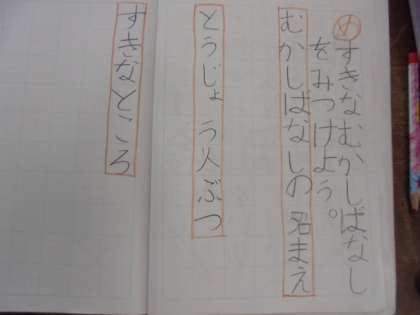 めすきなむかしばなし
をみつけよう。
むかしばなしの名まえ
とうじょう人ぶつ
すきなところ